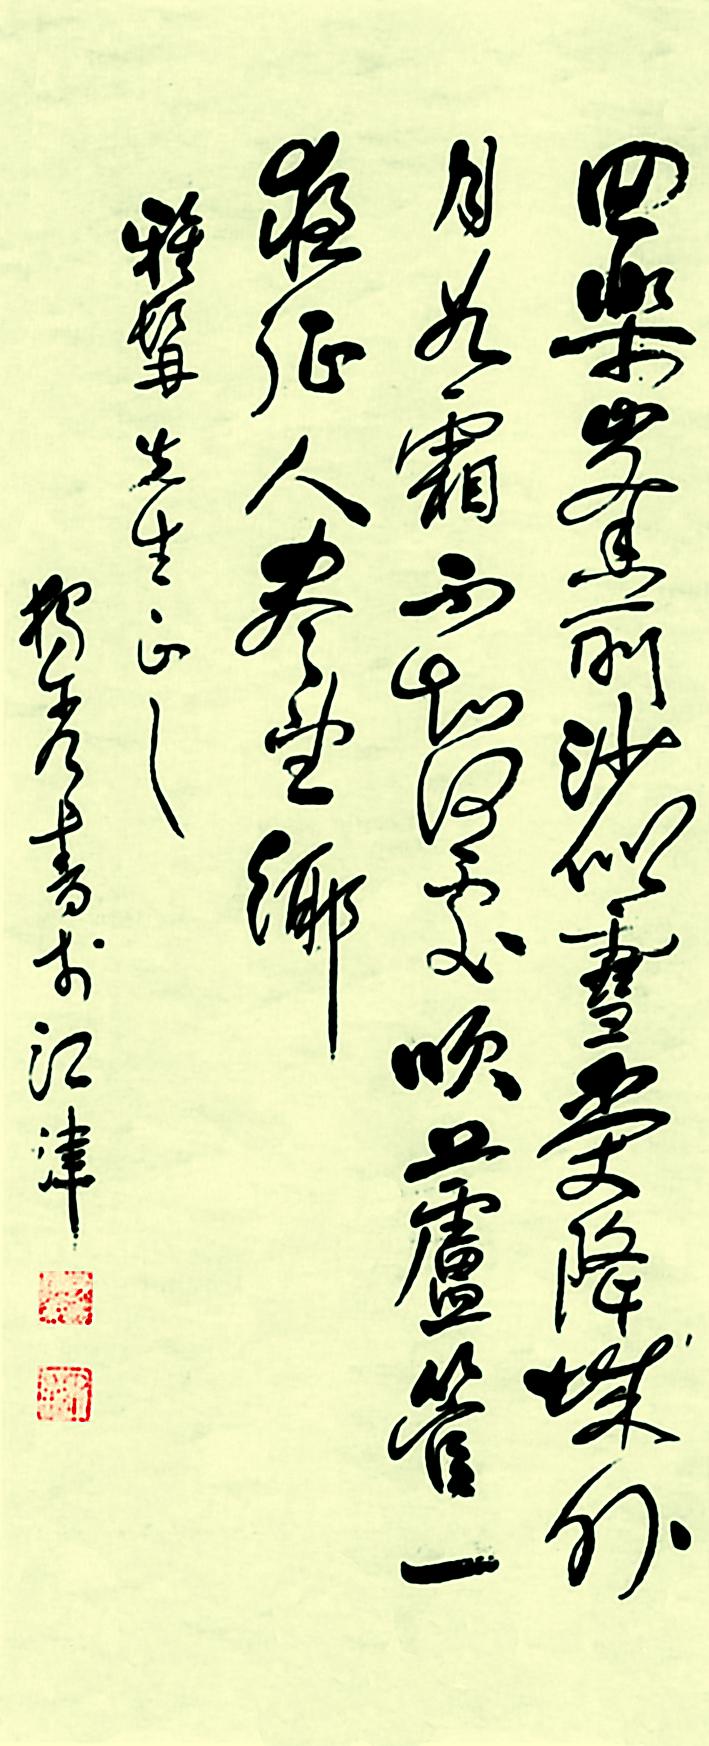 回樂峯前沙似雪受降城外
月如霜不知何處吹蘆管一
夜征人盡望鄉
雅髯先生正之
獨秀書於江津